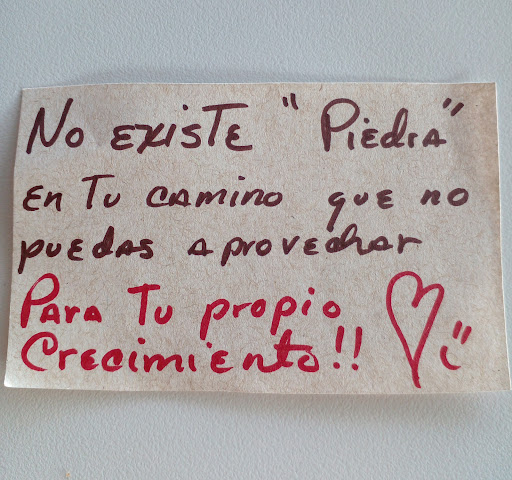 No existe "Piedra"
en Tu camino que no
puedas aprovechar
Para Tu propio
Crecimiento!!